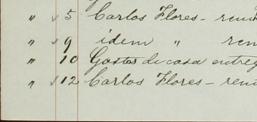 " " 5 Carlos Flores - remi
" " 9 idem " rem
" " 10 Gastos de casa entreg
" " 12 Carlos Flores - remi